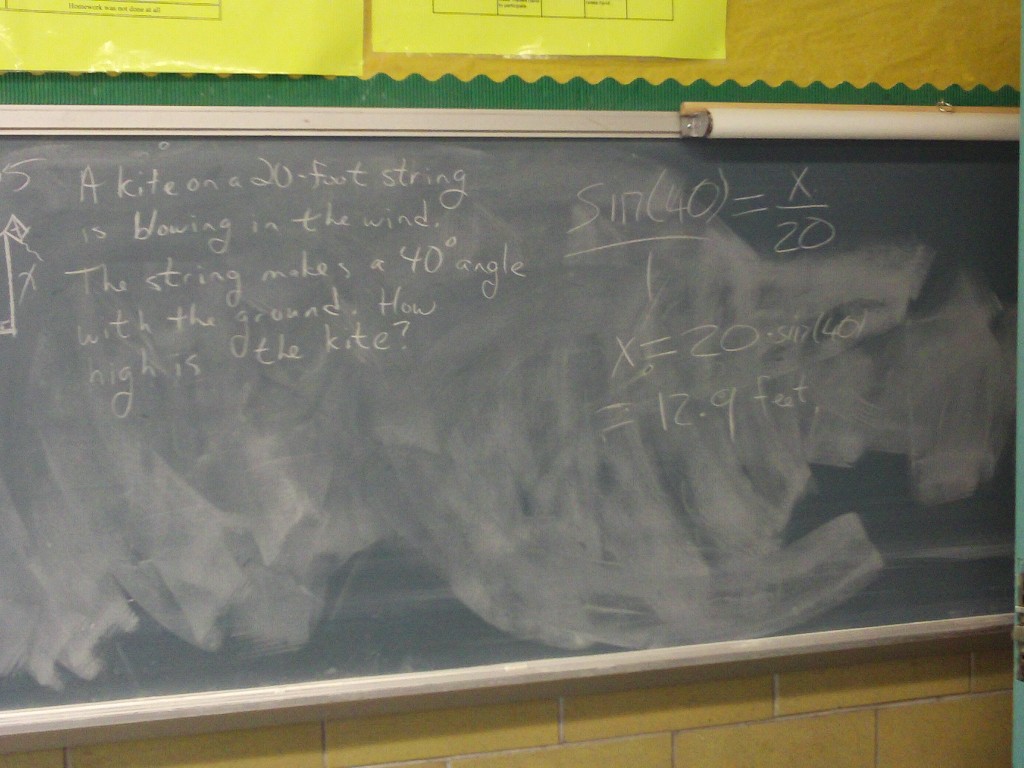 Homework was not done at all
5
A kite on a 20-foot string
is blowing in the wind.
The string makes a 40° angle
with the ground. How
high is the kite?
x
Sin(40) = x/20
1
x = 20·sin(40)
= 12.9 feet.